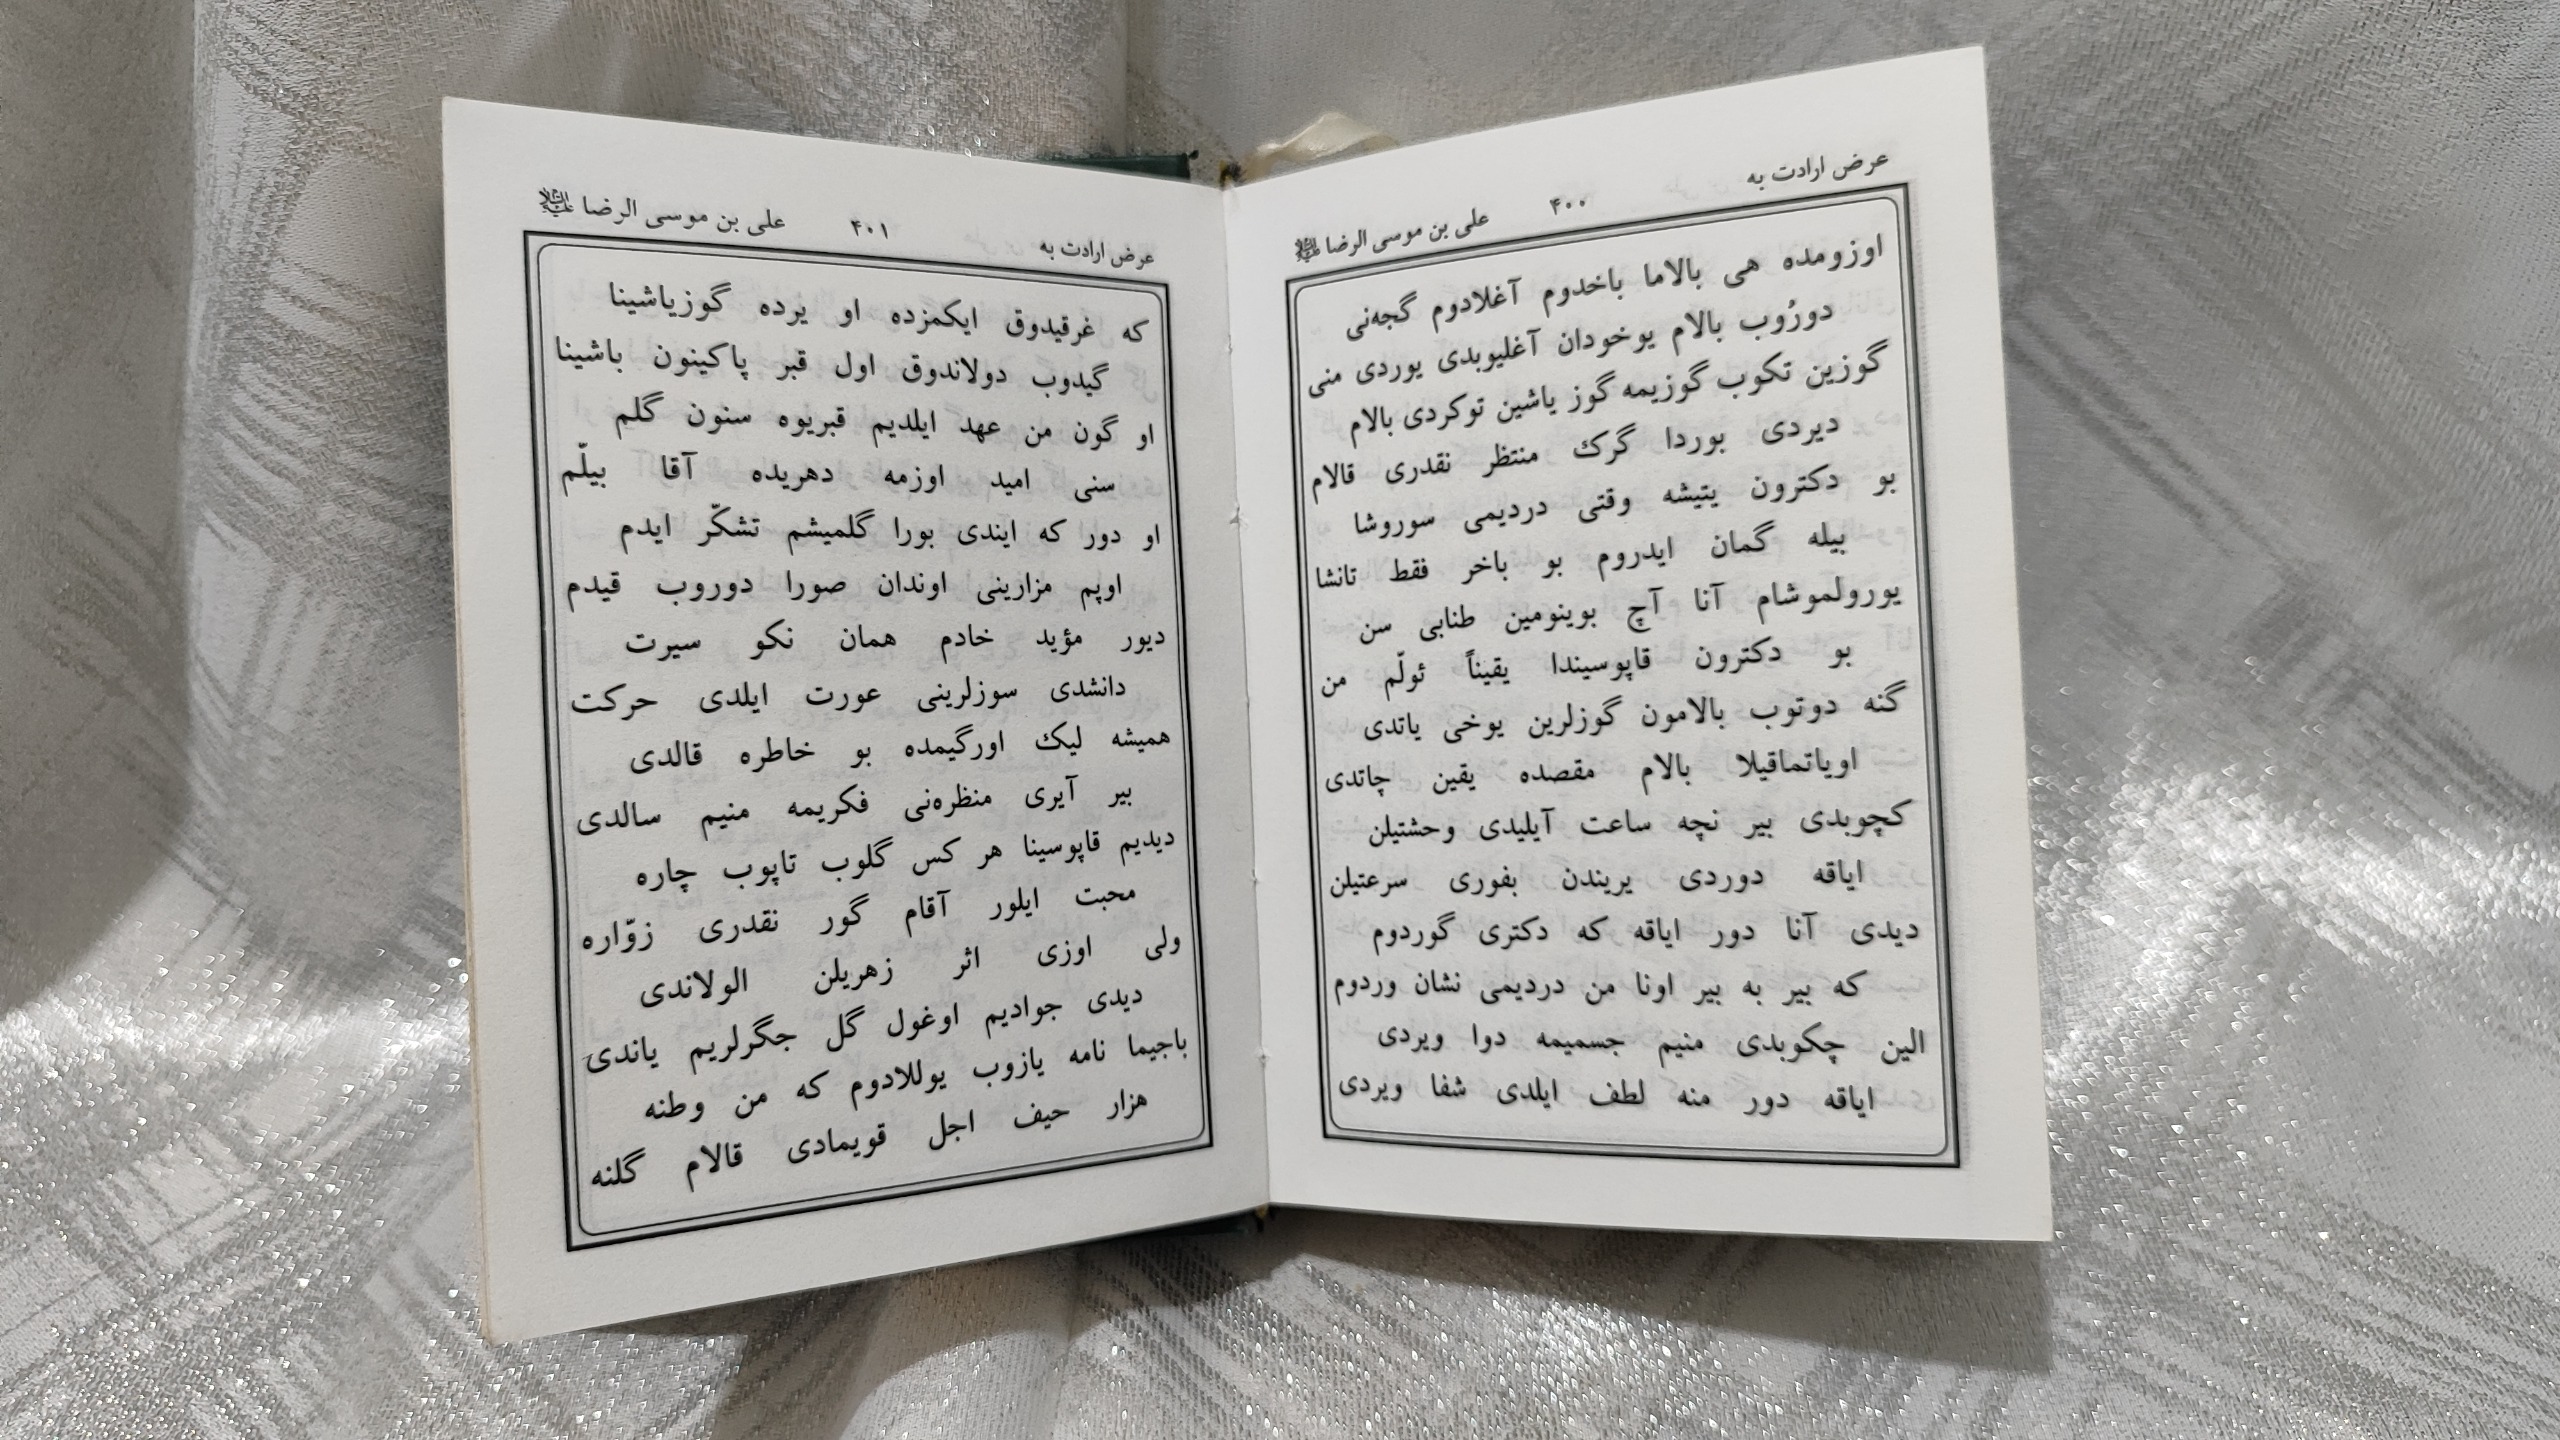 عرض ارادت به ۴۰۰ علی بن موسی الرضا علیه‌السلام
اوزومده هی بالاما باخدوم آغلادوم گجه‌نی
دورُوب بالام یوخودان آغلیوبدی یوردی منی
گوزین تکوب گوزیمه گوز یاشین توکردی بالام
دیردی بوردا گرک منتظر نقدری قالام
بو دکترون یتیشه وقتی دردیمی سوروشا
بیله گمان ایدروم بو باخر فقط تانشا
یورولموشام آنا آچ بوینومین طنابی سن
بو دکترون قاپوسیندا یقیناً ئولّم من
گنه دوتوب بالامون گوزلرین یوخی یاتدی
اویاتماقیلا بالام مقصده یقین چاتدی
کچوبدی بیر نچه ساعت آیلیدی وحشتیلن
ایاقه دوردی یریندن بفوری سرعتیلن
دیدی آنا دور ایاقه که دکتری گوردوم
که بیر به بیر اونا من دردیمی نشان وردوم
الین چکوبدی منیم جسمیمه دوا ویردی
ایاقه دور منه لطف ایلدی شفا ویردی
عرض ارادت به ۴۰۱ علی بن موسی الرضا علیه‌السلام
که غرقیدوق ایکمزده او یرده گوزیاشینا
گیدوب دولاندوق اول قبر پاکینون باشینا
او گون من عهد ایلدیم قبریوه سنون گلم
سنی امید اوزمه دهریده آقا بیلّم
او دور که ایندی بورا گلمیشم تشکّر ایدم
اوپم مزارینی اوندان صورا دوروب قیدم
دیور مؤید خادم همان نکو سیرت
دانشدی سوزلرینی عورت ایلدی حرکت
همیشه لیک اورگیمده بو خاطره قالدی
بیر آیری منظره‌نی فکریمه منیم سالدی
دیدیم قاپوسینا هر کس گلوب تاپوب چاره
محبت ایلور آقام گور نقدری زوّاره
ولی اوزی اثر زهریلن الولاندی
دیدی جوادیم اوغول گل جگرلریم یاندی
باجیما نامه یازوب یوللادوم که من وطنه
هزار حیف اجل قویمادی قالام گلنه